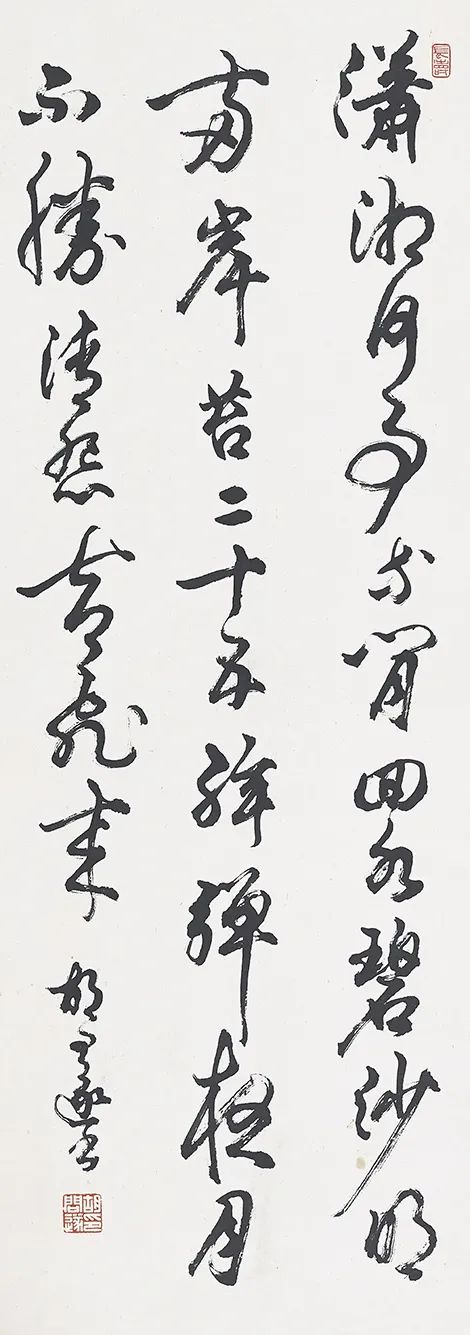 瀟湘何事等閒回水碧沙明
兩岸苔二十五絃彈夜月
不勝清怨卻飛來
胡問遂書